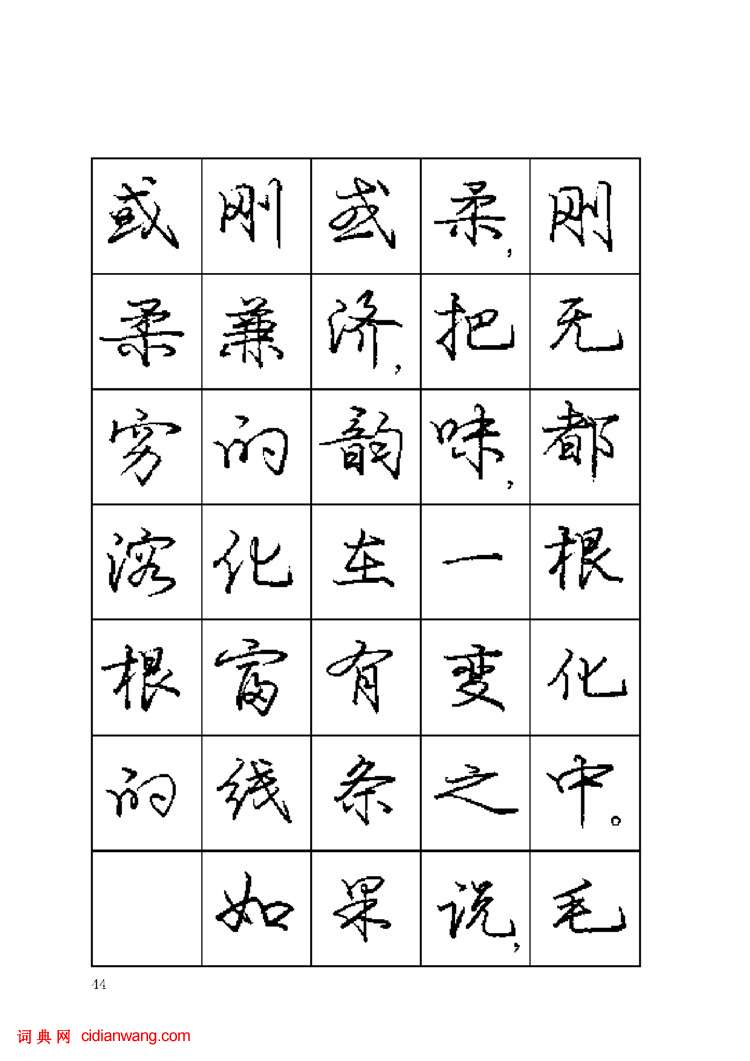 或刚或柔,刚
柔兼济,把无
穷的韵味,都
溶化在一根
根富有变化
的线条之中。
如果说,毛
44
词典网 cidianwang.com